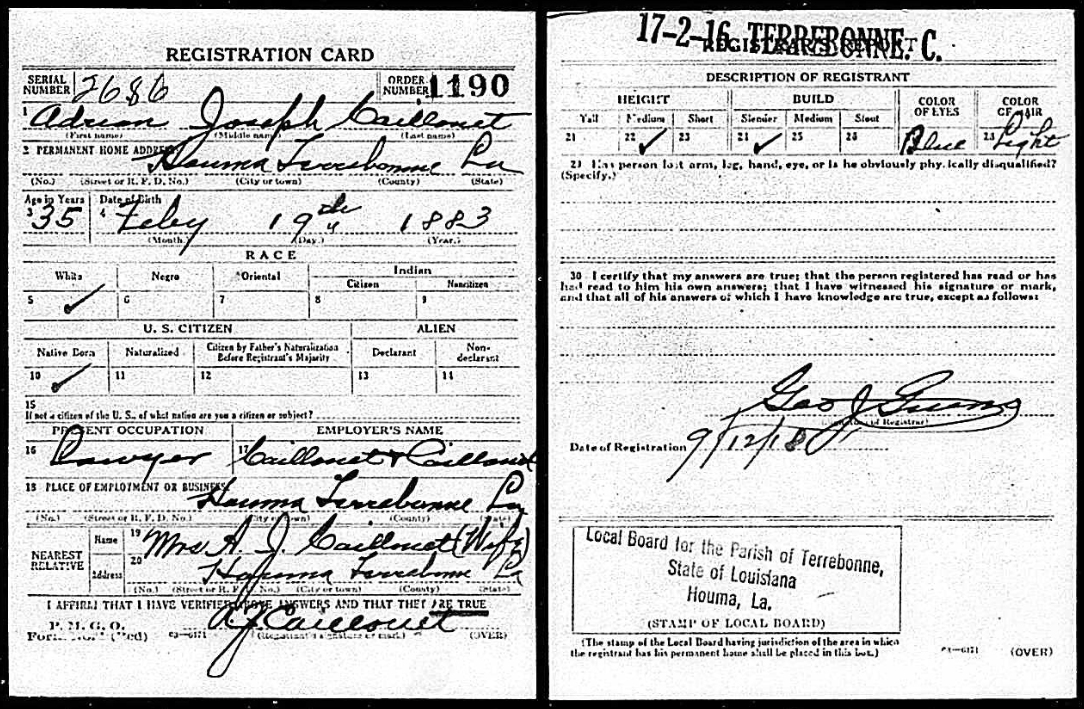 REGISTRATION CARD
SERIAL NUMBER 2686 ORDER NUMBER 1190
1 Adrian Joseph Caillouet
(First name) (Middle name) (Last name)
2 PERMANENT HOME ADDRESS
Houma Terrebonne La
(No.) (Street or R. F. D. No.) (City or town) (County) (State)
Age in Years Date of Birth
3 35 4 Feby 19th 1883
(Month.) (Day.) (Year.)
RACE
White Negro Oriental Indian
Citizen Noncitizen
5 6 7 8 9
U. S. CITIZEN ALIEN
Native Born Naturalized Citizen by Father's Naturalization Before Registrant's Majority Declarant Non-declarant
10 11 12 13 14
15
If not a citizen of the U. S., of what nation are you a citizen or subject?
PRESENT OCCUPATION EMPLOYER'S NAME
16 Lawyer 17 Caillouet & Caillouet
18 PLACE OF EMPLOYMENT OR BUSINESS
Houma Terrebonne La
(No.) (Street or R. F. D. No.) (City or town) (County) (State)
NEAREST RELATIVE
Name 19 Mrs A. J. Caillouet (Wife)
Address 20 Houma Terrebonne La
(No.) (Street or R. F. D. No.) (City or town) (County) (State)
I AFFIRM THAT I HAVE VERIFIED ABOVE ANSWERS AND THAT THEY ARE TRUE
A J Caillouet
P. M. G. O.
Form No. (Red) 03—6171 (Registrant's signature or mark.) (OVER)
17-2-16 TERREBONNE. C.
REGISTRAR'S REPORT
DESCRIPTION OF REGISTRANT
HEIGHT BUILD COLOR OF EYES COLOR OF HAIR
Tall Medium Short Slender Medium Stout
21 22 23 24 25 26 Blue 28 Light
29 Has person lost arm, leg, hand, eye, or is he obviously physically disqualified?
(Specify.)
30 I certify that my answers are true; that the person registered has read or has
had read to him his own answers; that I have witnessed his signature or mark,
and that all of his answers of which I have knowledge are true, except as follows:
Geo J
(Signature of Registrar)
Date of Registration 9/12/18
Local Board for the Parish of Terrebonne,
State of Louisiana
Houma, La.
(STAMP OF LOCAL BOARD)
(The stamp of the Local Board having jurisdiction of the area in which
the registrant has his permanent home shall be placed in this box.)
03—6171 (OVER)